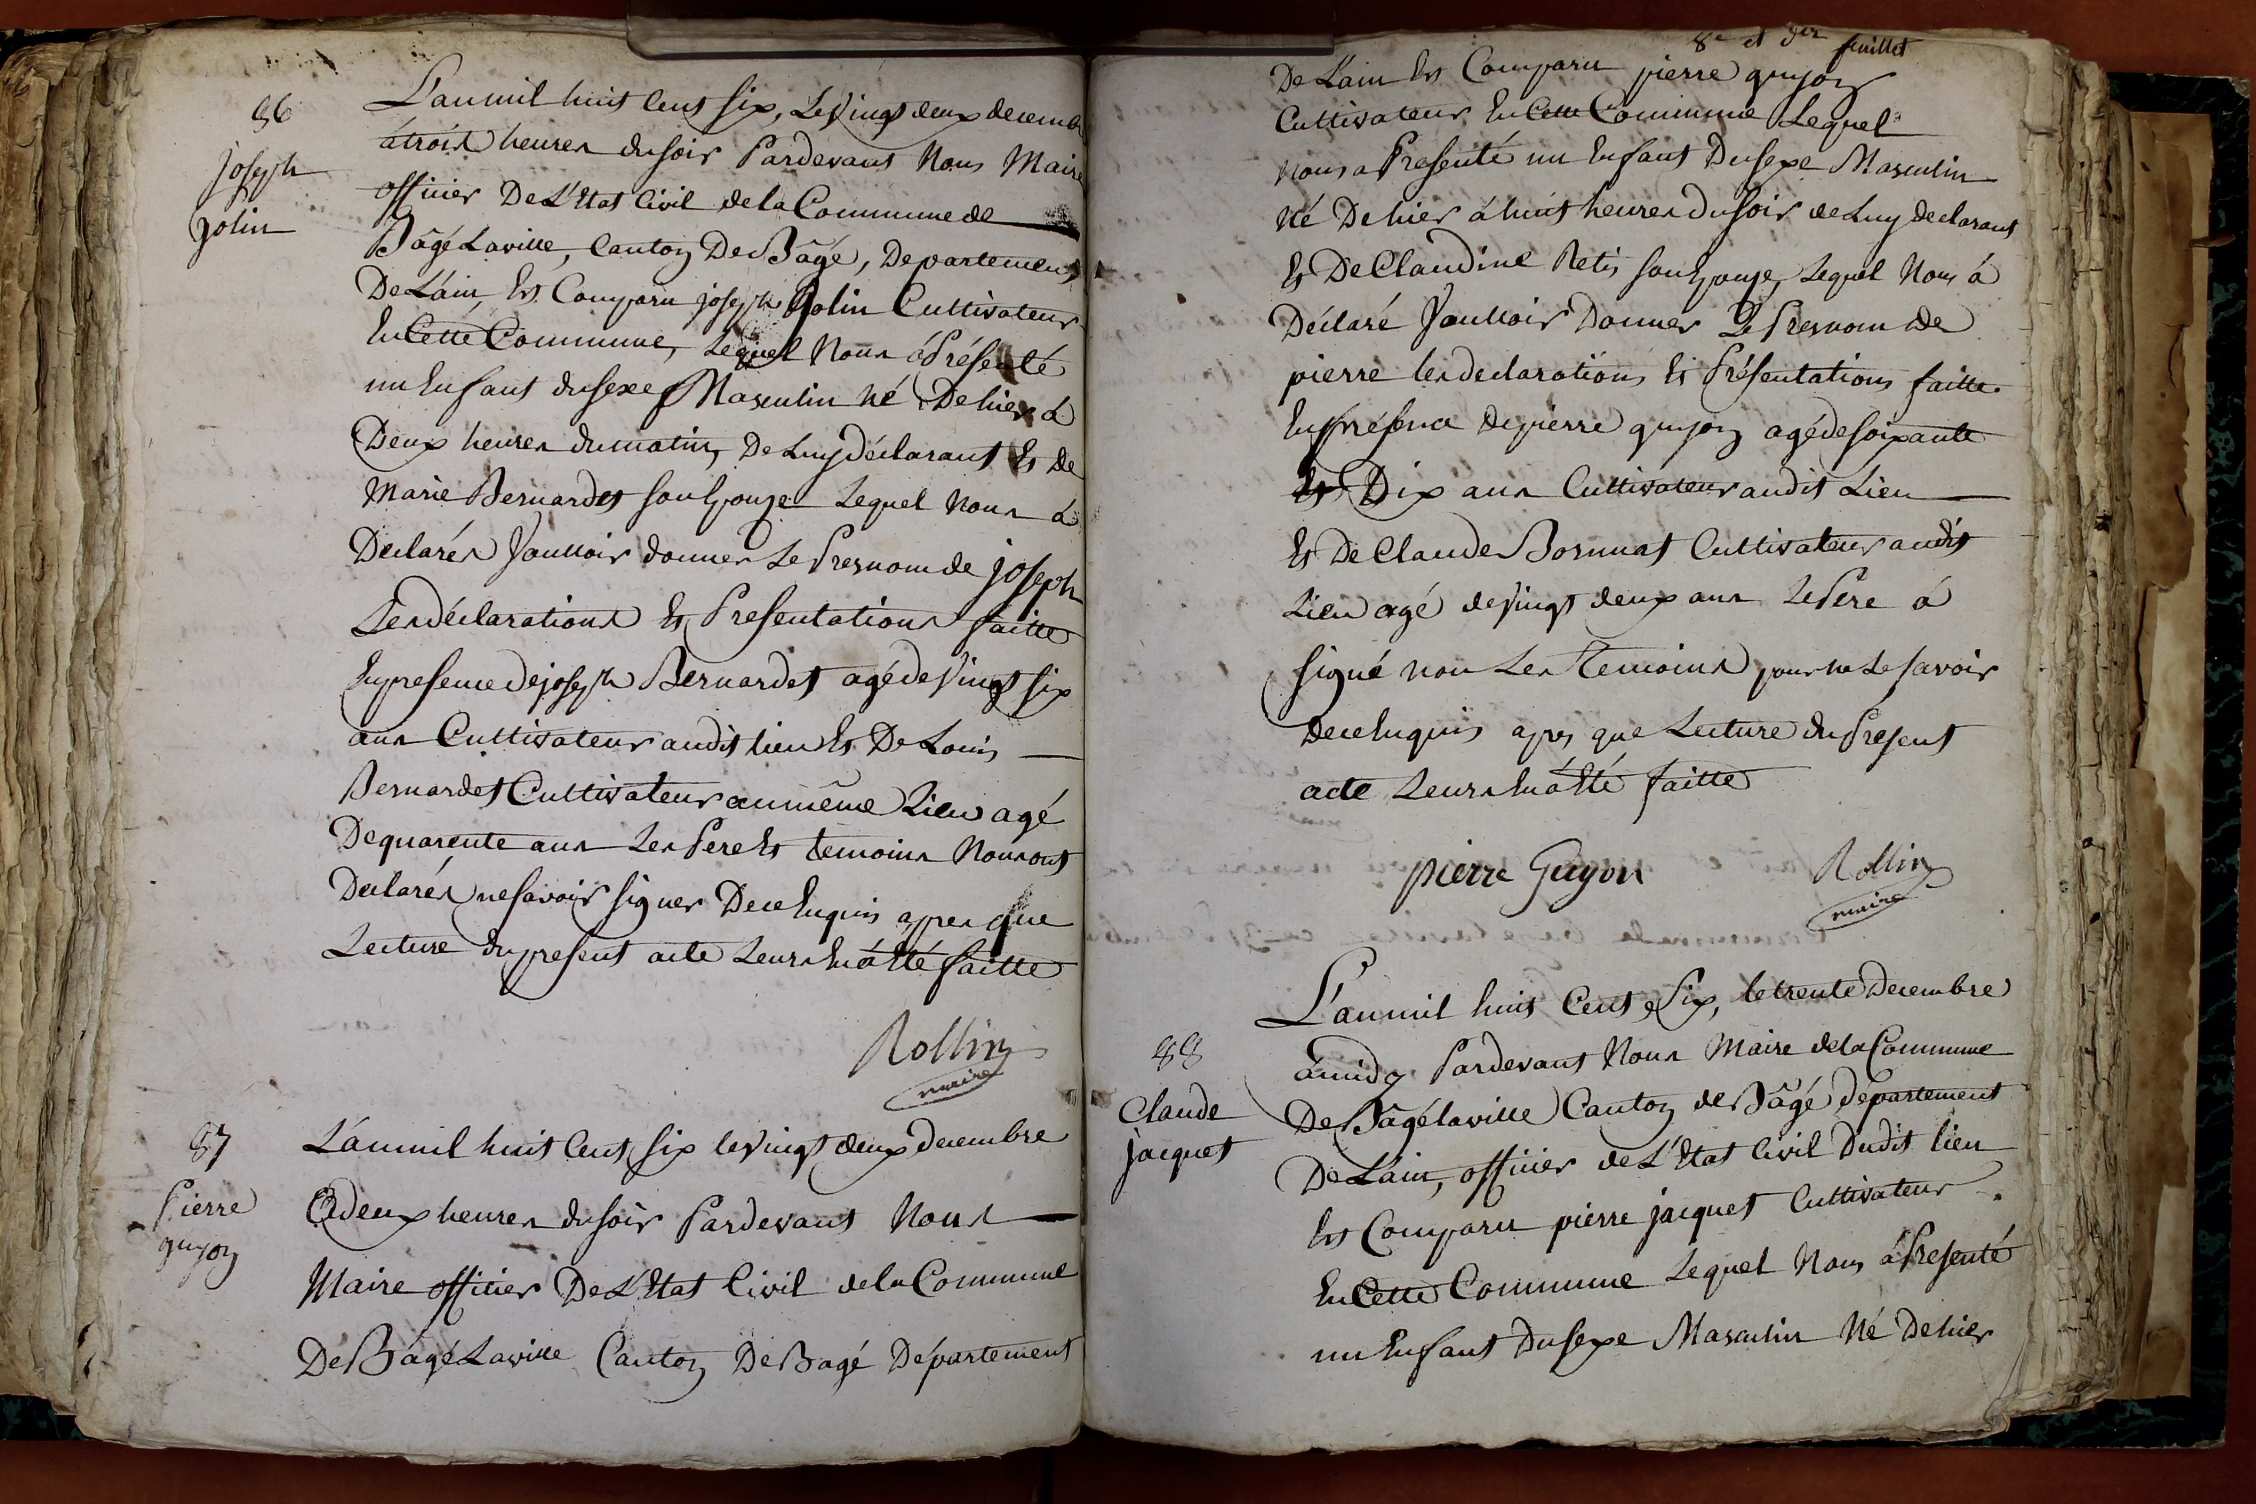 86
joseph
jolin
L'an mil huit Cent six, Le Vingt deux decembre
á trois heures du soir Pardevant Nous Maire
officier De L'Etat Civil de la Commune de
Bâgé Laville, Canton De Bâgé, Departement
De L'ain, Est Comparu joseph Jolin Cultivateur
En Cette Commune, Lequel Nous á Présenté
un Enfant du sexe Masculin Né De hier á
Deux heures du matin, De Luy Déclarant Et De
Marie Bernardet son Epouze Lequel Nous á
Declarés Vaulloir donner Le Presnom de joseph
Les déclarations Et Presentations faitte
En presence de joseph Bernardet agé de Vingt six
ans Cultivateur audit lieu Et De Louis
Bernardet Cultivateur au même Lieu agé
De quarente ans Les Pere Et temoins Nous ont
Declarés ne savoir signer De ce Enquis apres que
Lecture du present acte Leurs En á Eté faitte
Rollin
maire
87
Pierre
guyon
L'an mil huit Cent six le Vingt deux Decembre
á deux heures du soir Pardevant Nous
Maire officier De L'Etat Civil de la Commune
De Bâgé Laville Canton De Bagé Département
8e et der feuillet
De L'ain Est Comparu pierre guyon
Cultivateur En Cette Commune Lequel
nous a Presenté un Enfant Du sexe Masculin
Né De hier á huit heures du soir de Luy declarant
Et De Claudine Retis son Epouze, Lequel Nous á
Déclaré Vaulloir Donner Le Presnom de
pierre les declarations Et Présentations faitte
En présence de pierre guyon agé de soixante
Et Dix ans Cultivateur audit Lieu
Et De Claude Bornnat Cultivateur audit
Lieu agé de Vingt deux ans Le Pere á
signé non Les temoins pour ne Le savoir
De ce Enquis apres que Lecture du Present
acte Leurs En á Eté faitte
pierre Guyon
Rollin
maire
88
Claude
jacquet
L'an mil huit Cent Six, le trente Decembre
á midy Pardevant Nous Maire de la Commune
De Bâgé laville Canton de Bâgé Département
De L'ain, officier de L'Etat Civil Dudit lieu
Est Comparu pierre jacquet Cultivateur
En Cette Commune Lequel Nous á Presenté
un Enfant Du sexe Masculin Né De hier